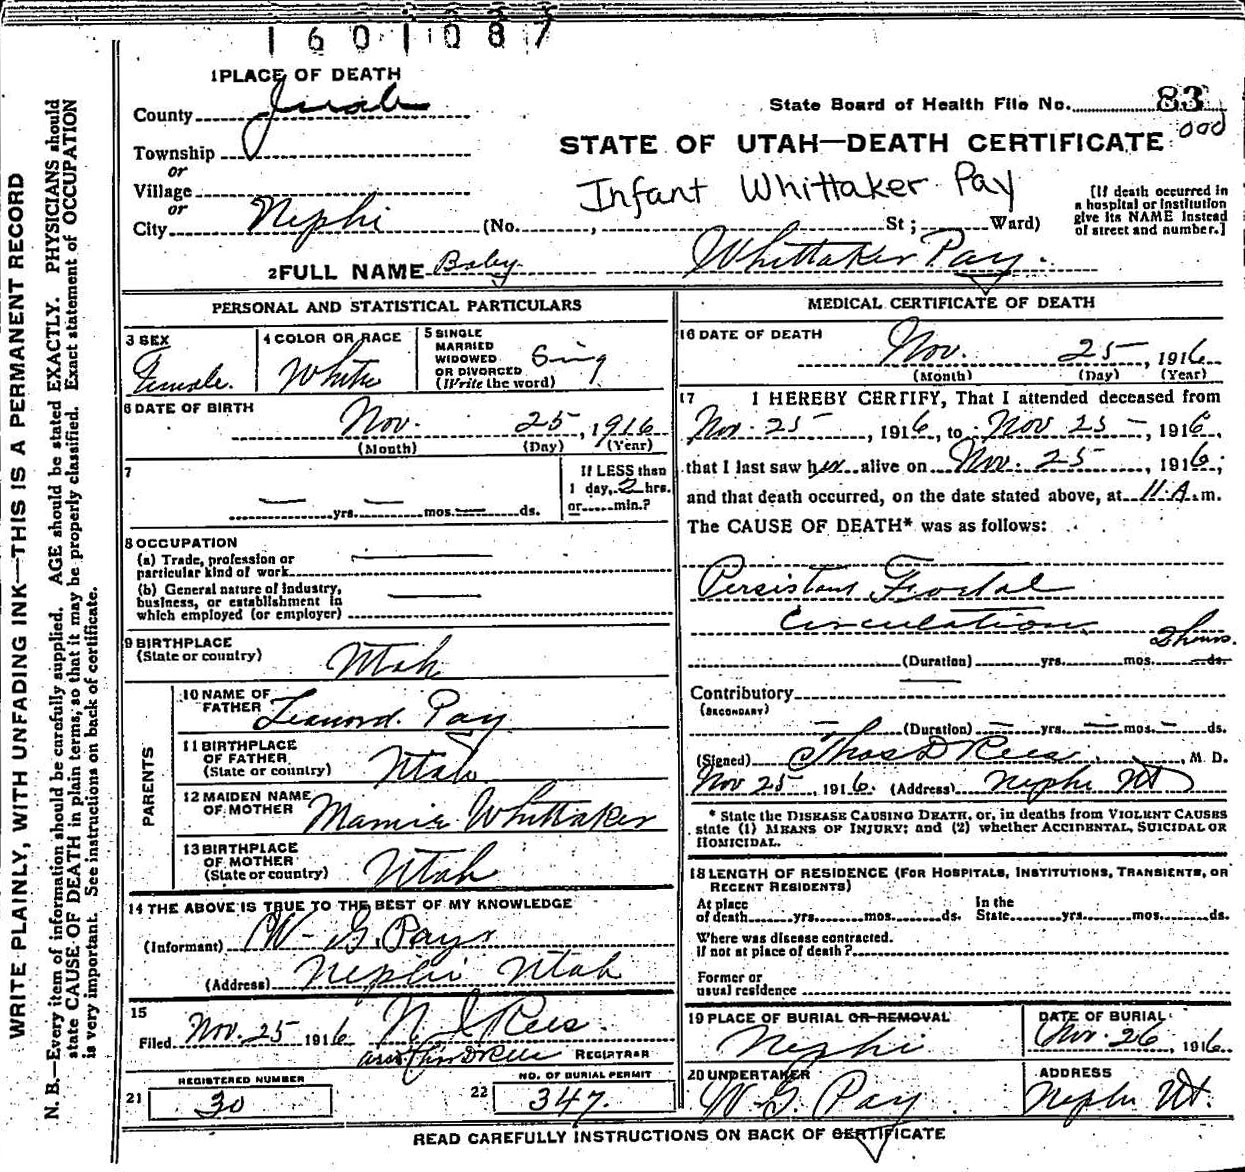 1601087
1 PLACE OF DEATH
County Juab
State Board of Health File No. 83
000
Township
or
Village
or
City Nephi (No. , St; Ward)
STATE OF UTAH—DEATH CERTIFICATE
Infant Whittaker Pay
[If death occurred in
a hospital or institution
give its NAME instead
of street and number.]
2 FULL NAME Baby Whittaker Pay.
PERSONAL AND STATISTICAL PARTICULARS
3 SEX
Female.
4 COLOR OR RACE
White
5 SINGLE
MARRIED
WIDOWED
OR DIVORCED
(Write the word)
Sing
6 DATE OF BIRTH
Nov. 25, 1916
(Month) (Day) (Year)
7
yrs. mos. ds.
If LESS than
1 day, 2 hrs.
or min.?
8 OCCUPATION
(a) Trade, profession or
particular kind of work
(b) General nature of industry,
business, or establishment in
which employed (or employer)
9 BIRTHPLACE
(State or country)
Utah
PARENTS
10 NAME OF
FATHER
Leanord. Pay
11 BIRTHPLACE
OF FATHER
(State or country)
Utah
12 MAIDEN NAME
OF MOTHER
Mamie Whittaker
13 BIRTHPLACE
OF MOTHER
(State or country)
Utah
14 THE ABOVE IS TRUE TO THE BEST OF MY KNOWLEDGE
(Informant) W. G. Pay
(Address) Nephi Utah
15
Filed Nov. 25 1916 Rees.
REGISTRAR
21
REGISTERED NUMBER
30
22
NO. OF BURIAL PERMIT
347.
MEDICAL CERTIFICATE OF DEATH
16 DATE OF DEATH
Nov. 25, 1916
(Month) (Day) (Year)
17 I HEREBY CERTIFY, That I attended deceased from
Nov. 25, 1916, to Nov 25, 1916,
that I last saw her alive on Nov. 25, 1916;
and that death occurred, on the date stated above, at 11 A. m.
The CAUSE OF DEATH* was as follows:
Persistant Foetal
Circulation
2 hours.
(Duration) yrs. mos. ds.
Contributory
(SECONDARY)
(Duration) yrs. mos. ds.
(Signed) Thos D Rees, M. D.
Nov 25, 1916. (Address) Nephi Ut
* State the DISEASE CAUSING DEATH, or, in deaths from VIOLENT CAUSES
state (1) MEANS OF INJURY; and (2) whether ACCIDENTAL, SUICIDAL OR
HOMICIDAL.
18 LENGTH OF RESIDENCE (FOR HOSPITALS, INSTITUTIONS, TRANSIENTS, OR
RECENT RESIDENTS)
At place
of death yrs. mos. ds.
In the
State yrs. mos. ds.
Where was disease contracted.
if not at place of death?
Former or
usual residence
19 PLACE OF BURIAL OR REMOVAL
Nephi
DATE OF BURIAL
Nov. 26, 1916.
20 UNDERTAKER
W. G. Pay
ADDRESS
Nephi Ut.
READ CAREFULLY INSTRUCTIONS ON BACK OF CERTIFICATE
WRITE PLAINLY, WITH UNFADING INK—THIS IS A PERMANENT RECORD
N. B.—Every item of information should be carefully supplied. AGE should be stated EXACTLY. PHYSICIANS should
state CAUSE OF DEATH in plain terms, so that it may be properly classified. Exact statement of OCCUPATION
is very important. See instructions on back of certificate.